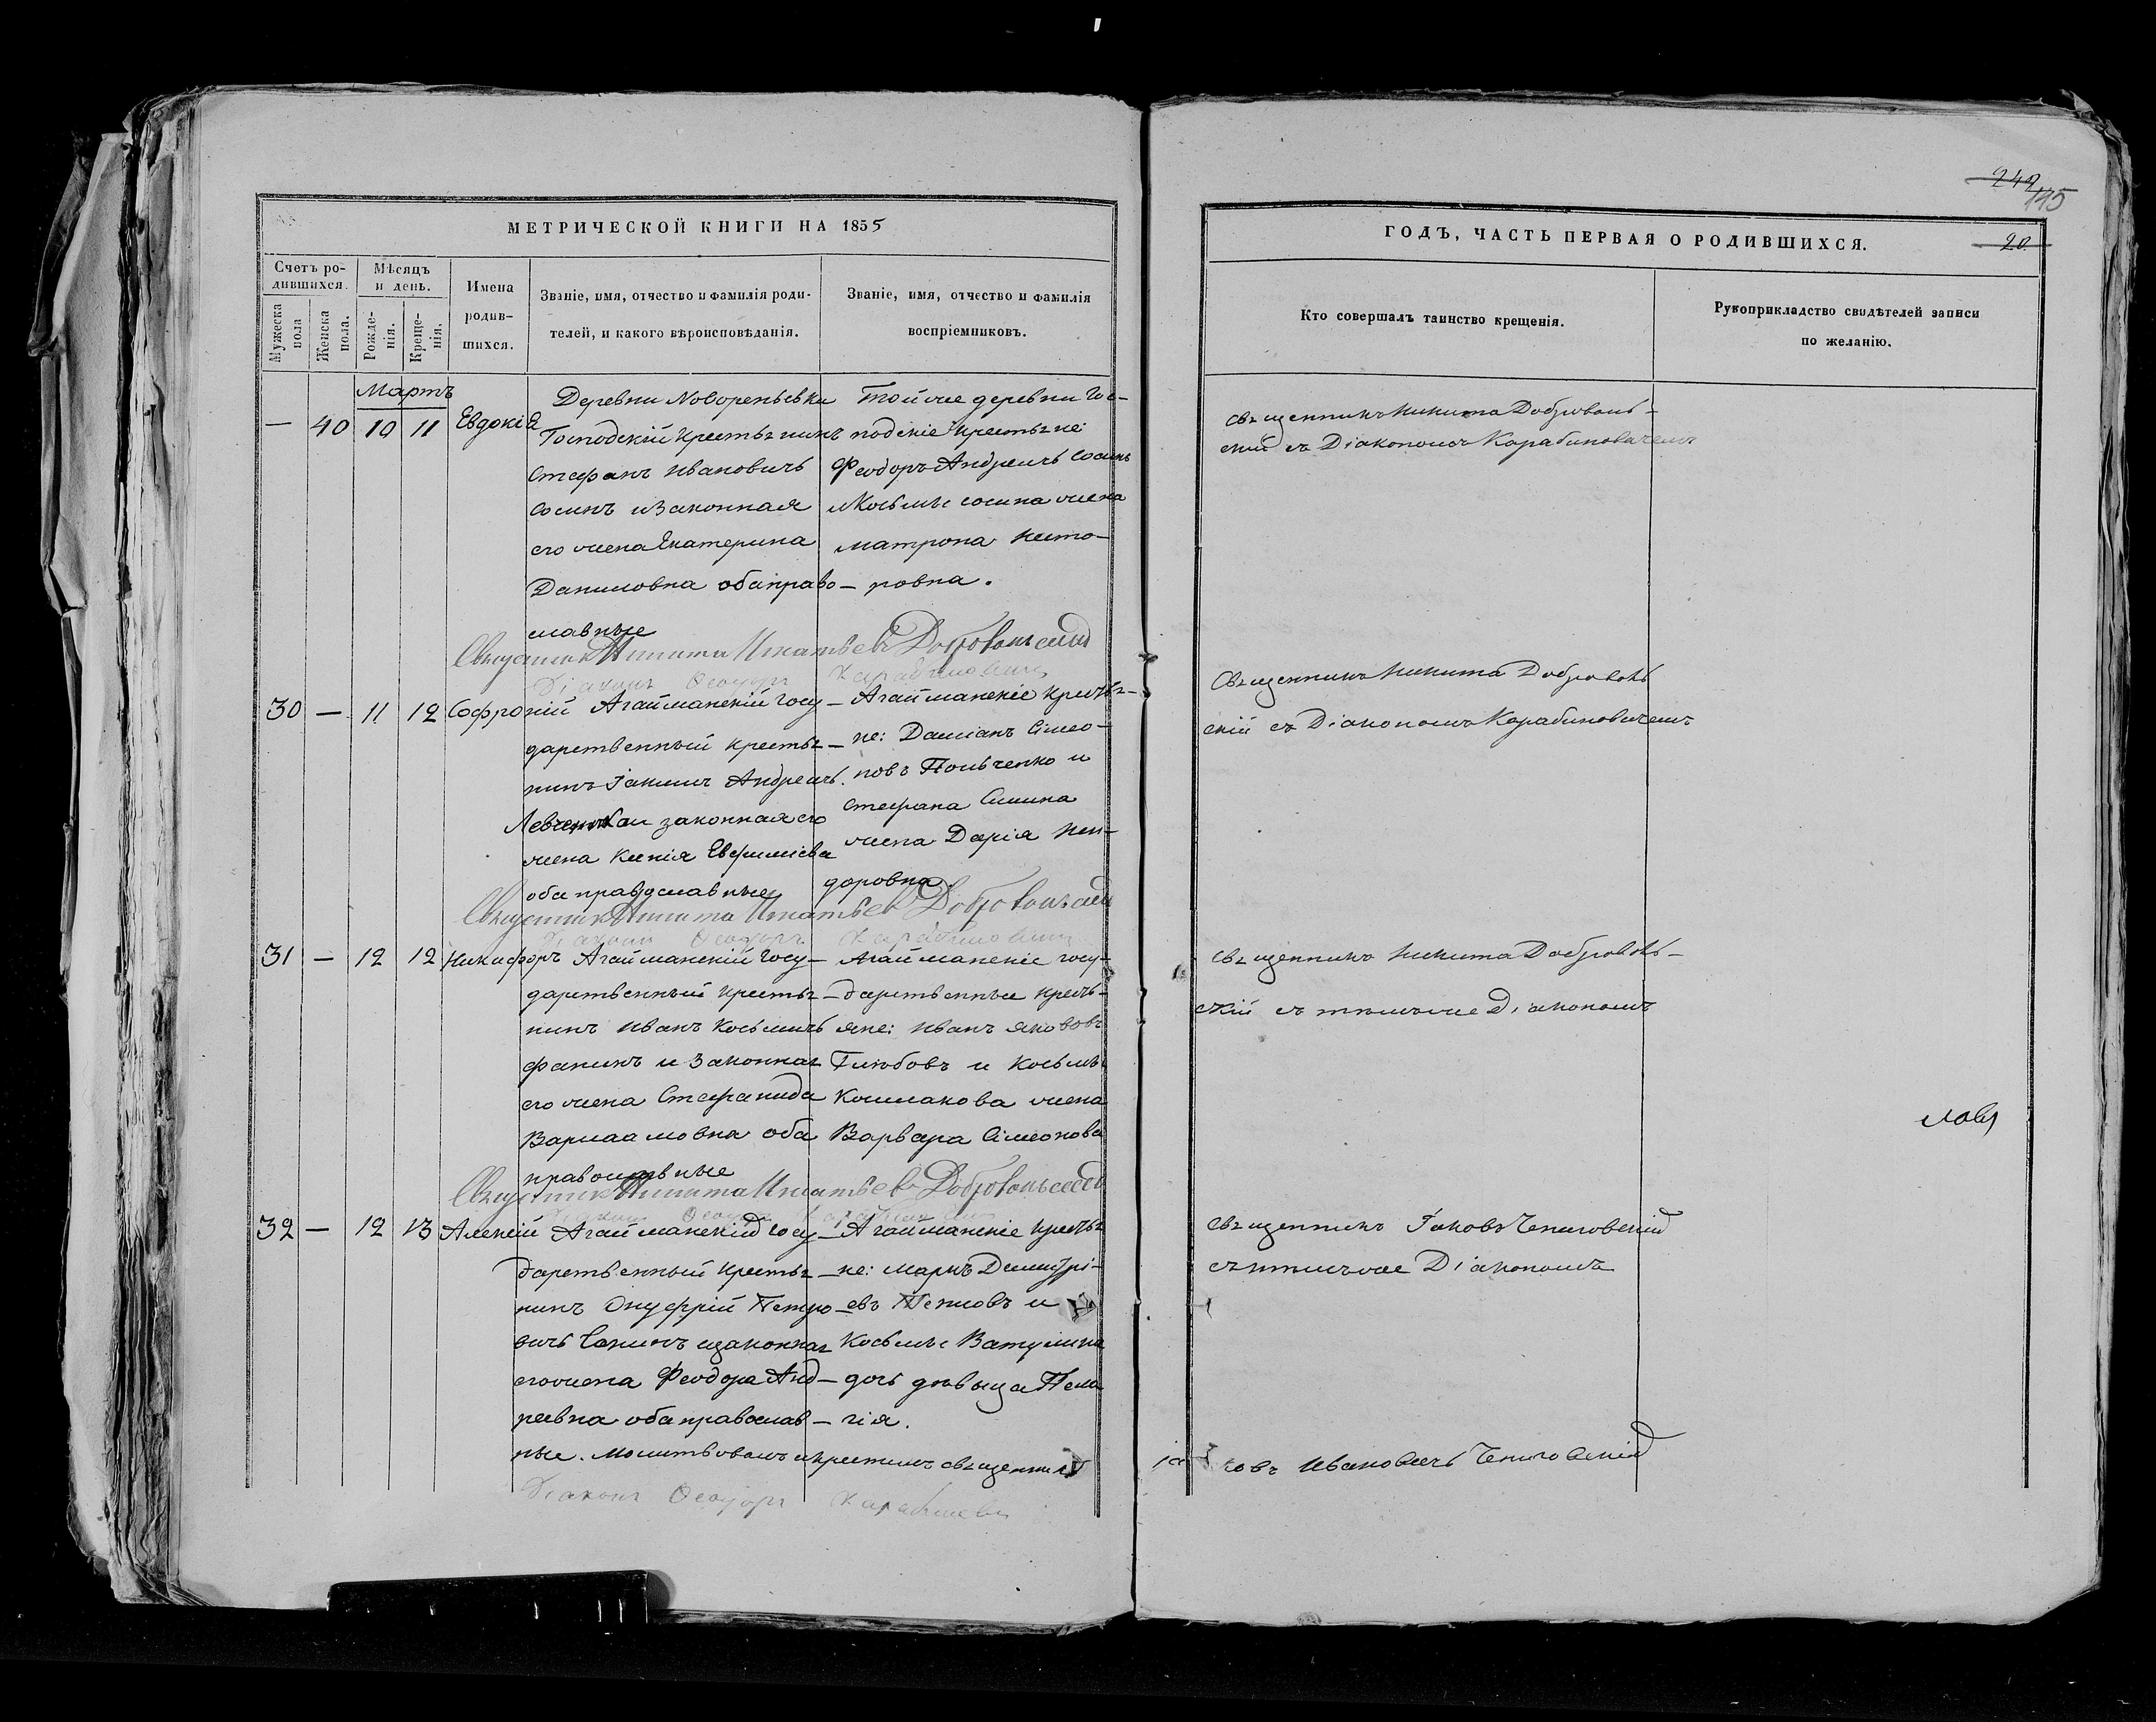 242
115
МЕТРИЧЕСКОЙ КНИГИ НА 1855
ГОДЪ, ЧАСТЬ ПЕРВАЯ О РОДИВШИХСЯ.
20
Счетъ ро-
дившихся.
Мужеска
пола
Женска
пола.
Мѣсяцъ
и день.
Рожде-
нія.
Креще-
нія.
Имена
родив-
шихся.
Званіе, имя, отчество и фамилія роди-
телей, и какого вѣроисповѣданія.
Званіе, имя, отчество и фамилія
воспріемниковъ.
Кто совершалъ таинство крещенія.
Рукоприкладство свидѣтелей записи
по желанію.
Мартъ
— 40 10 11 Евдокія
Деревни
Господскій крестьянинъ
Стефанъ Ивановичъ
Сосинъ и законная
его жена Екатерина
Даниловна оба право-
славные
Той же деревни Гос-
подскіе крестьяне:
Феодоръ Андреичъ Сосинъ
и Косьмы Сосина жена
матрона
ровна.
священникъ Никита Доброволь-
скій съ Діакономъ Карабиновичемъ
Священникъ Никита Игнатьевъ Добровольскій
Діаконъ Ѳеодоръ Карабиновичъ
30 — 11 12 Софроній
Агайманскій госу-
дарственный крестья-
нинъ Іакимъ Андреичъ
Левченко и законная его
жена Ксенія Евфиміева
оба православные
Агайманскіе крестья-
не: Даміанъ Симео-
новъ и
Стефана
жена Дарія
доровна.
Священникъ Никита Доброволь
скій съ Діакономъ Карабиновичемъ
Священникъ Никита Игнатьевъ Добровольскій
Діаконъ Ѳеодоръ Карабиновичъ
31 — 12 12 Никифоръ
Агайманскій госу-
дарственный крестья-
нинъ Иванъ Косьмичъ
фанинъ и законная
его жена Стефанида
Варлаамовна оба
православные
Агайманскіе госу-
дарственные кресть-
яне: Иванъ Яковъ
и Косьмы
жена
Варвара Симеонова
священникъ Никита Доброволь-
скій съ тѣмъ же Діакономъ
Священникъ Никита Игнатьевъ Добровольскій
Діаконъ Ѳеодоръ
32 — 12 13 Алексій
Агайманскій госу-
дарственный крестья-
нинъ Онуфрій Петро-
вичъ и законная
его жена Феодора Анд-
реевна оба православ-
ные. Молитвовалъ и крестилъ священникъ
Агайманскіе крестья
не: Маркъ Димитрі-
евъ и
Косьмы Ватулина
дочь дѣвица Пела
гія.
священникъ Іаковъ Чениговскій
съ тѣмъ же Діакономъ
Іаковъ Ивановичъ Чениговскій
Діаконъ Ѳеодоръ